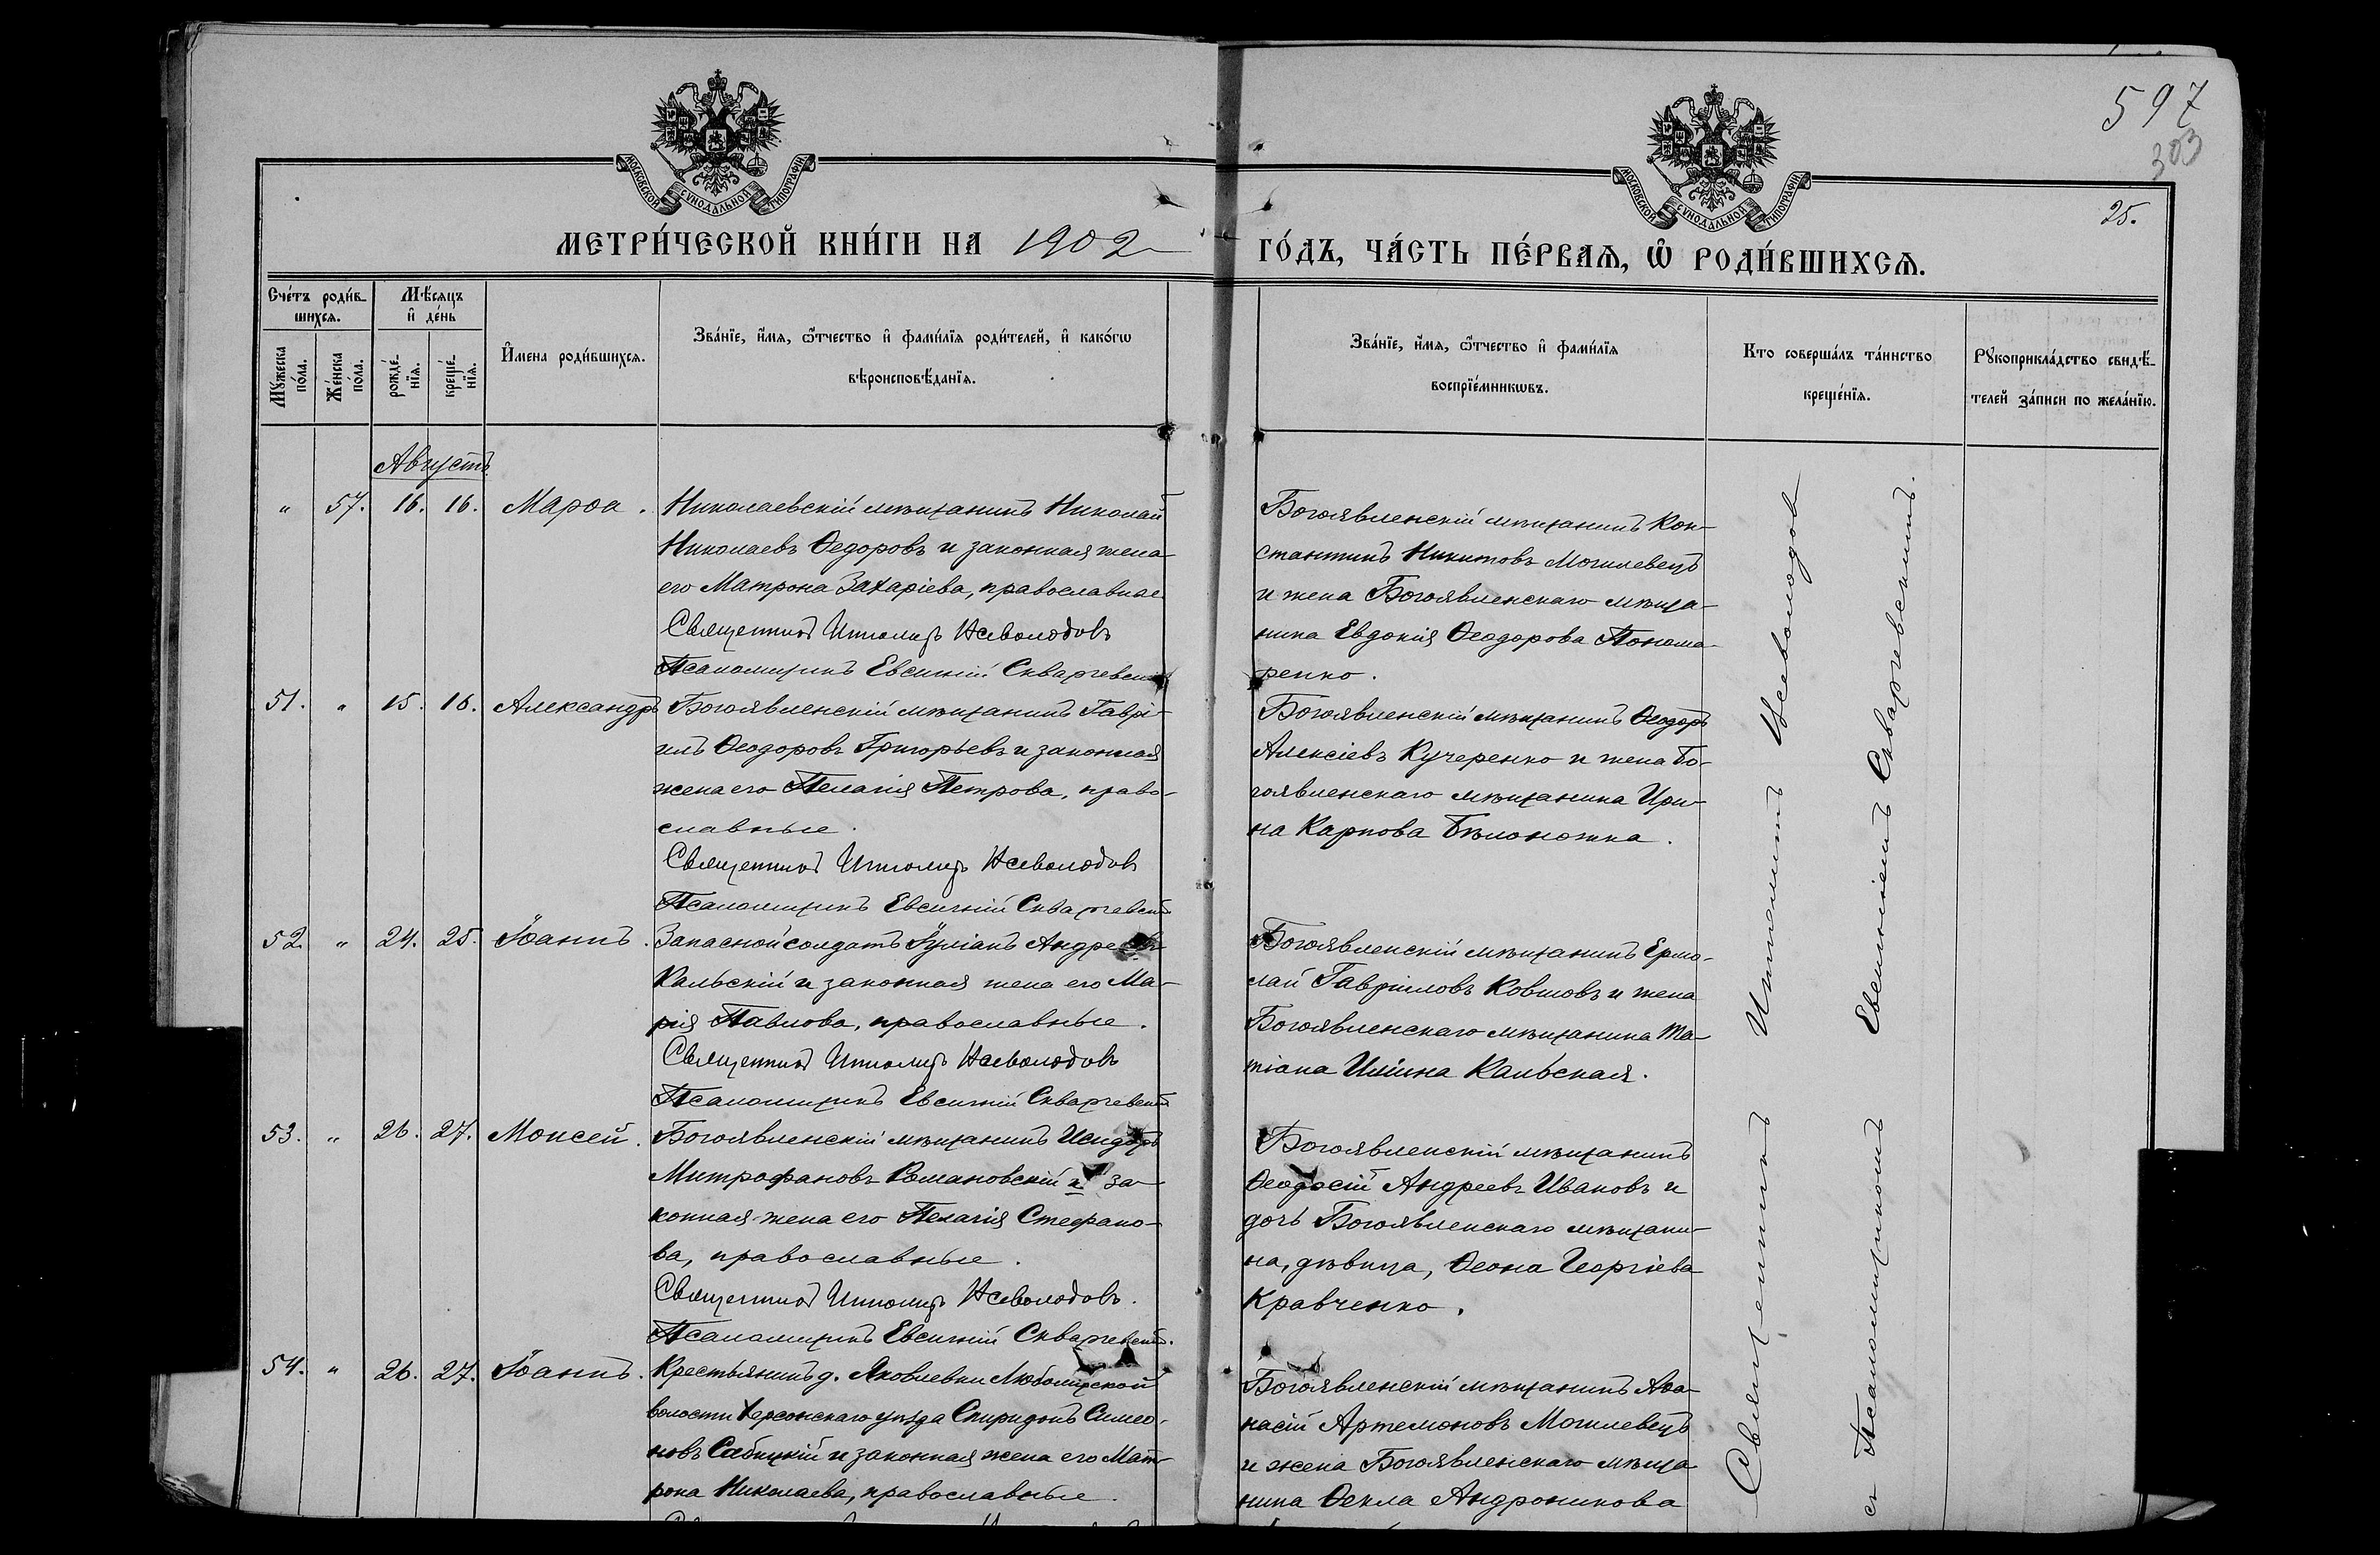 597
303
25.
МОСКОВСКОЙ СѴНОДАЛЬНОЙ ТИПОГРАФІИ
МОСКОВСКОЙ СѴНОДАЛЬНОЙ ТИПОГРАФІИ
МЕТРИ́ЧЕСКОЙ КНИ́ГИ НА 1902 ГО́ДЪ, ЧА́СТЬ ПЕ́РВАѦ, Ѡ҆ РОДИ́ВШИХСѦ.
Сче́тъ роди́в-
шихсѧ.
Мꙋ́жеска
по́ла.
Же́нска
по́ла.
Мѣ́сѧцъ
и҆ де́нь
рожде́-
нїѧ.
креще́-
нїѧ.
И҆мена роди́вшихсѧ.
Зва́нїе, и҆́мѧ, ѻ҆́тчество и҆ фами́лїѧ роди́телей, и҆ како́гѡ
вѣроисповѣ́данїѧ.
Зва́нїе, и҆́мѧ, ѻ҆́тчество и҆ фами́лїѧ
воспрїе́мникѡвъ.
Кто соверша́лъ та́инство
креще́нїѧ.
Рꙋкоприкла́дство свидѣ́-
телей за́писи по жела́нїю.
Августъ.
" 57. 16. 16. Марѳа. Николаевскій мѣщанинъ Николай
Николаевъ Ѳедоровъ и законная жена
его Матрона Захаріева, православные
Священникъ Ипполитъ Всеволодовъ
Псаломщикъ Евсигній Скваржевскій
Богоявленскій мѣщанинъ Кон-
стантинъ Никитовъ Могилевецъ
и жена Богоявленскаго мѣща-
нина Евдокія Ѳеодорова Понома-
ренко.
51. " 15. 16. Александръ Богоявленскій мѣщанинъ Гаврі-
илъ Ѳеодоровъ Григорьевъ и законная
жена его Пелагія Петрова, право-
славные.
Священникъ Ипполитъ Всеволодовъ
Псаломщикъ Евсигній Скваржевскій
Богоявленскій мѣщанинъ Ѳеодоръ
Алексіевъ Кучеренко и жена Бо-
гоявленскаго мѣщанина Ири-
на Карпова Бѣлоножка.
52. " 24. 25. Іоаннъ. Запасной солдатъ Іуліанъ Андреевъ
Кальскій и законная жена его Ма-
рія Павлова, православные.
Священникъ Ипполитъ Всеволодовъ
Псаломщикъ Евсигній Скваржевскій
Богоявленскій мѣщанинъ Ермо-
лай Гавріиловъ Ковшовъ и жена
Богоявленскаго мѣщанина Та-
тіана Иліина Кальская.
53. " 26. 27. Моисей. Богоявленскій мѣщанинъ Исидоръ
Митрофановъ Романовскій и за-
конная жена его Пелагія Стефано-
ва, православные.
Священникъ Ипполитъ Всеволодовъ.
Псаломщикъ Евсигній Скваржевскій.
Богоявленскій мѣщанинъ
Ѳеодосій Андреевъ Ивановъ и
дочь Богоявленскаго мѣщани-
на, дѣвица, Ѳеона Георгіева
Кравченко.
54. " 26. 27. Іоаннъ. Крестьянинъ д. Яковлевки Любомирской
волости Херсонскаго уѣзда Спиридонъ Симео-
новъ Сабицкій и законная жена его Мат-
рона Николаева, православные.
Богоявленскій мѣщанинъ Аѳа-
насій Артемоновъ Могилевецъ
и жена Богоявленскаго мѣща-
нина Ѳекла Андроникова
Священникъ Ипполитъ Всеволодовъ
съ Псаломщикомъ Евсигніемъ Скваржевскимъ.